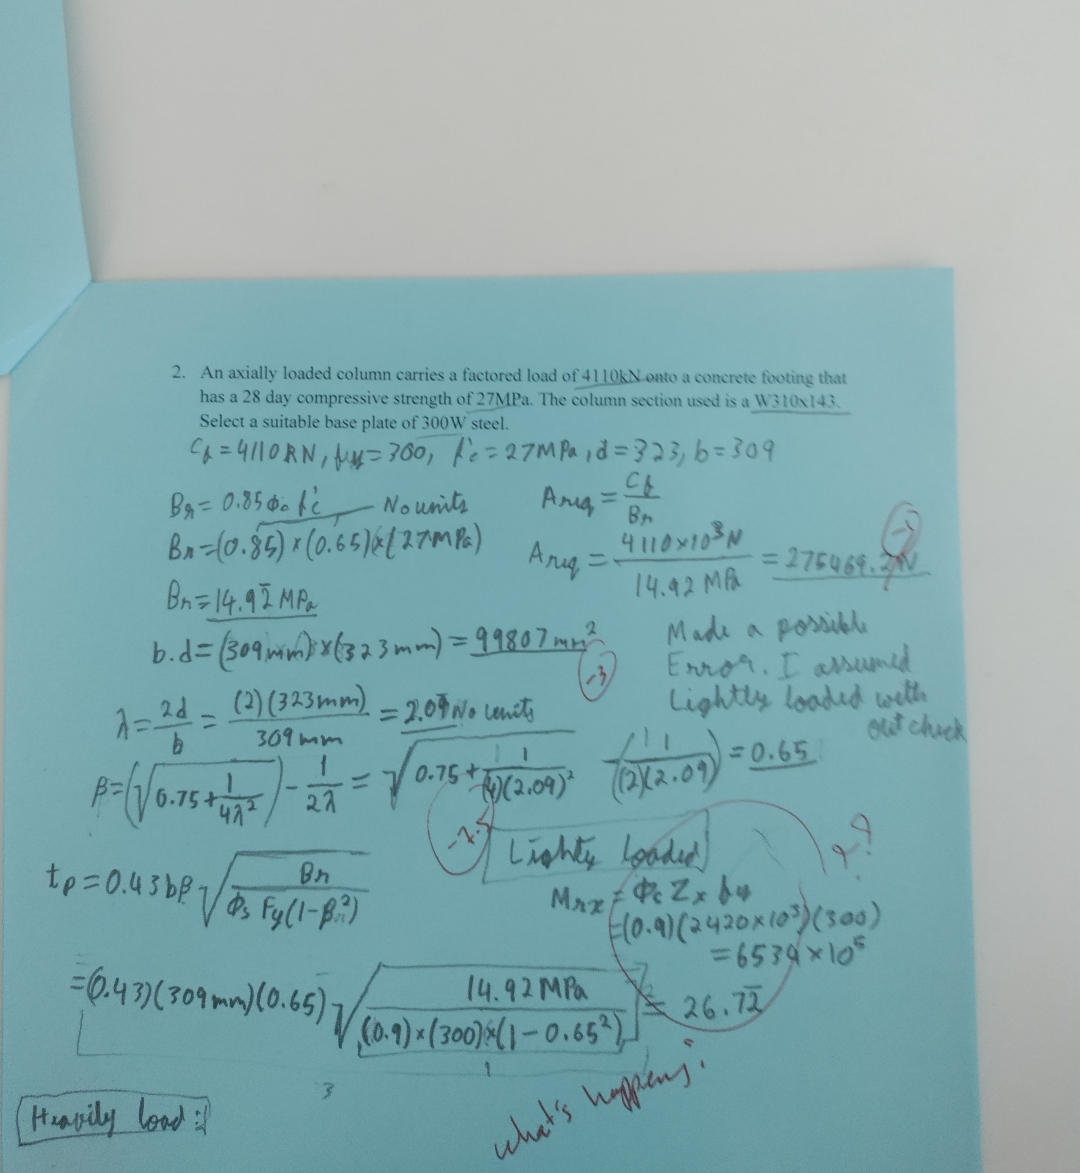 2. An axially loaded column carries a factored load of 4110kN onto a concrete footing that
has a 28 day compressive strength of 27MPa. The column section used is a W310x143.
Select a suitable base plate of 300W steel.
Cf = 4110KN, fy = 300, f'c = 27MPa, d = 323, b = 309
Br = 0.85 Φc f'c No units
Br = (0.85) x (0.65) x (27MPa)
Br = 14.92 MPa
Areq = Cf / Br
Areq = 4110x10³N / 14.92 MPa = 275469.2N
b.d = (309mm) x (323mm) = 99807mm²
-3
Made a possible
Error. I assumed
Lightly loaded with
out check
λ = 2d / b = (2)(323mm) / 309mm = 2.09 No units
β = (√(0.75 + 1/4λ²)) - 1/2λ = √(0.75 + 1/(4)(2.09)²) (1/(2)(2.09)) = 0.65
Lightly loaded
tp = 0.43bβ √(Br / Φs Fy(1-β²))
Mrx = Φc Zx fy
=(0.9)(2420x10³)(300)
= 6534 x10⁵
=(0.43)(309mm)(0.65) √(14.92MPa / (0.9)x(300)x(1-0.65²)) = 26.72
3
what's happens?
Heavily load: